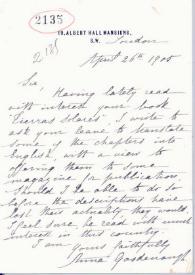 2135
19, ALBERT HALL MANSIONS,
S.W. London
April 26th 1905
Sir,
Having lately read
with interest your book
"Tierras Solares". I write to
ask your leave to translate
some of the chapters into
English, with a view to
offering them to some
magazine for publication.
Should I be able to do so
before the descriptions have
lost their actuality they would
I feel sure, be read with much
interest in this country.
I am
Yours faithfully
Anna